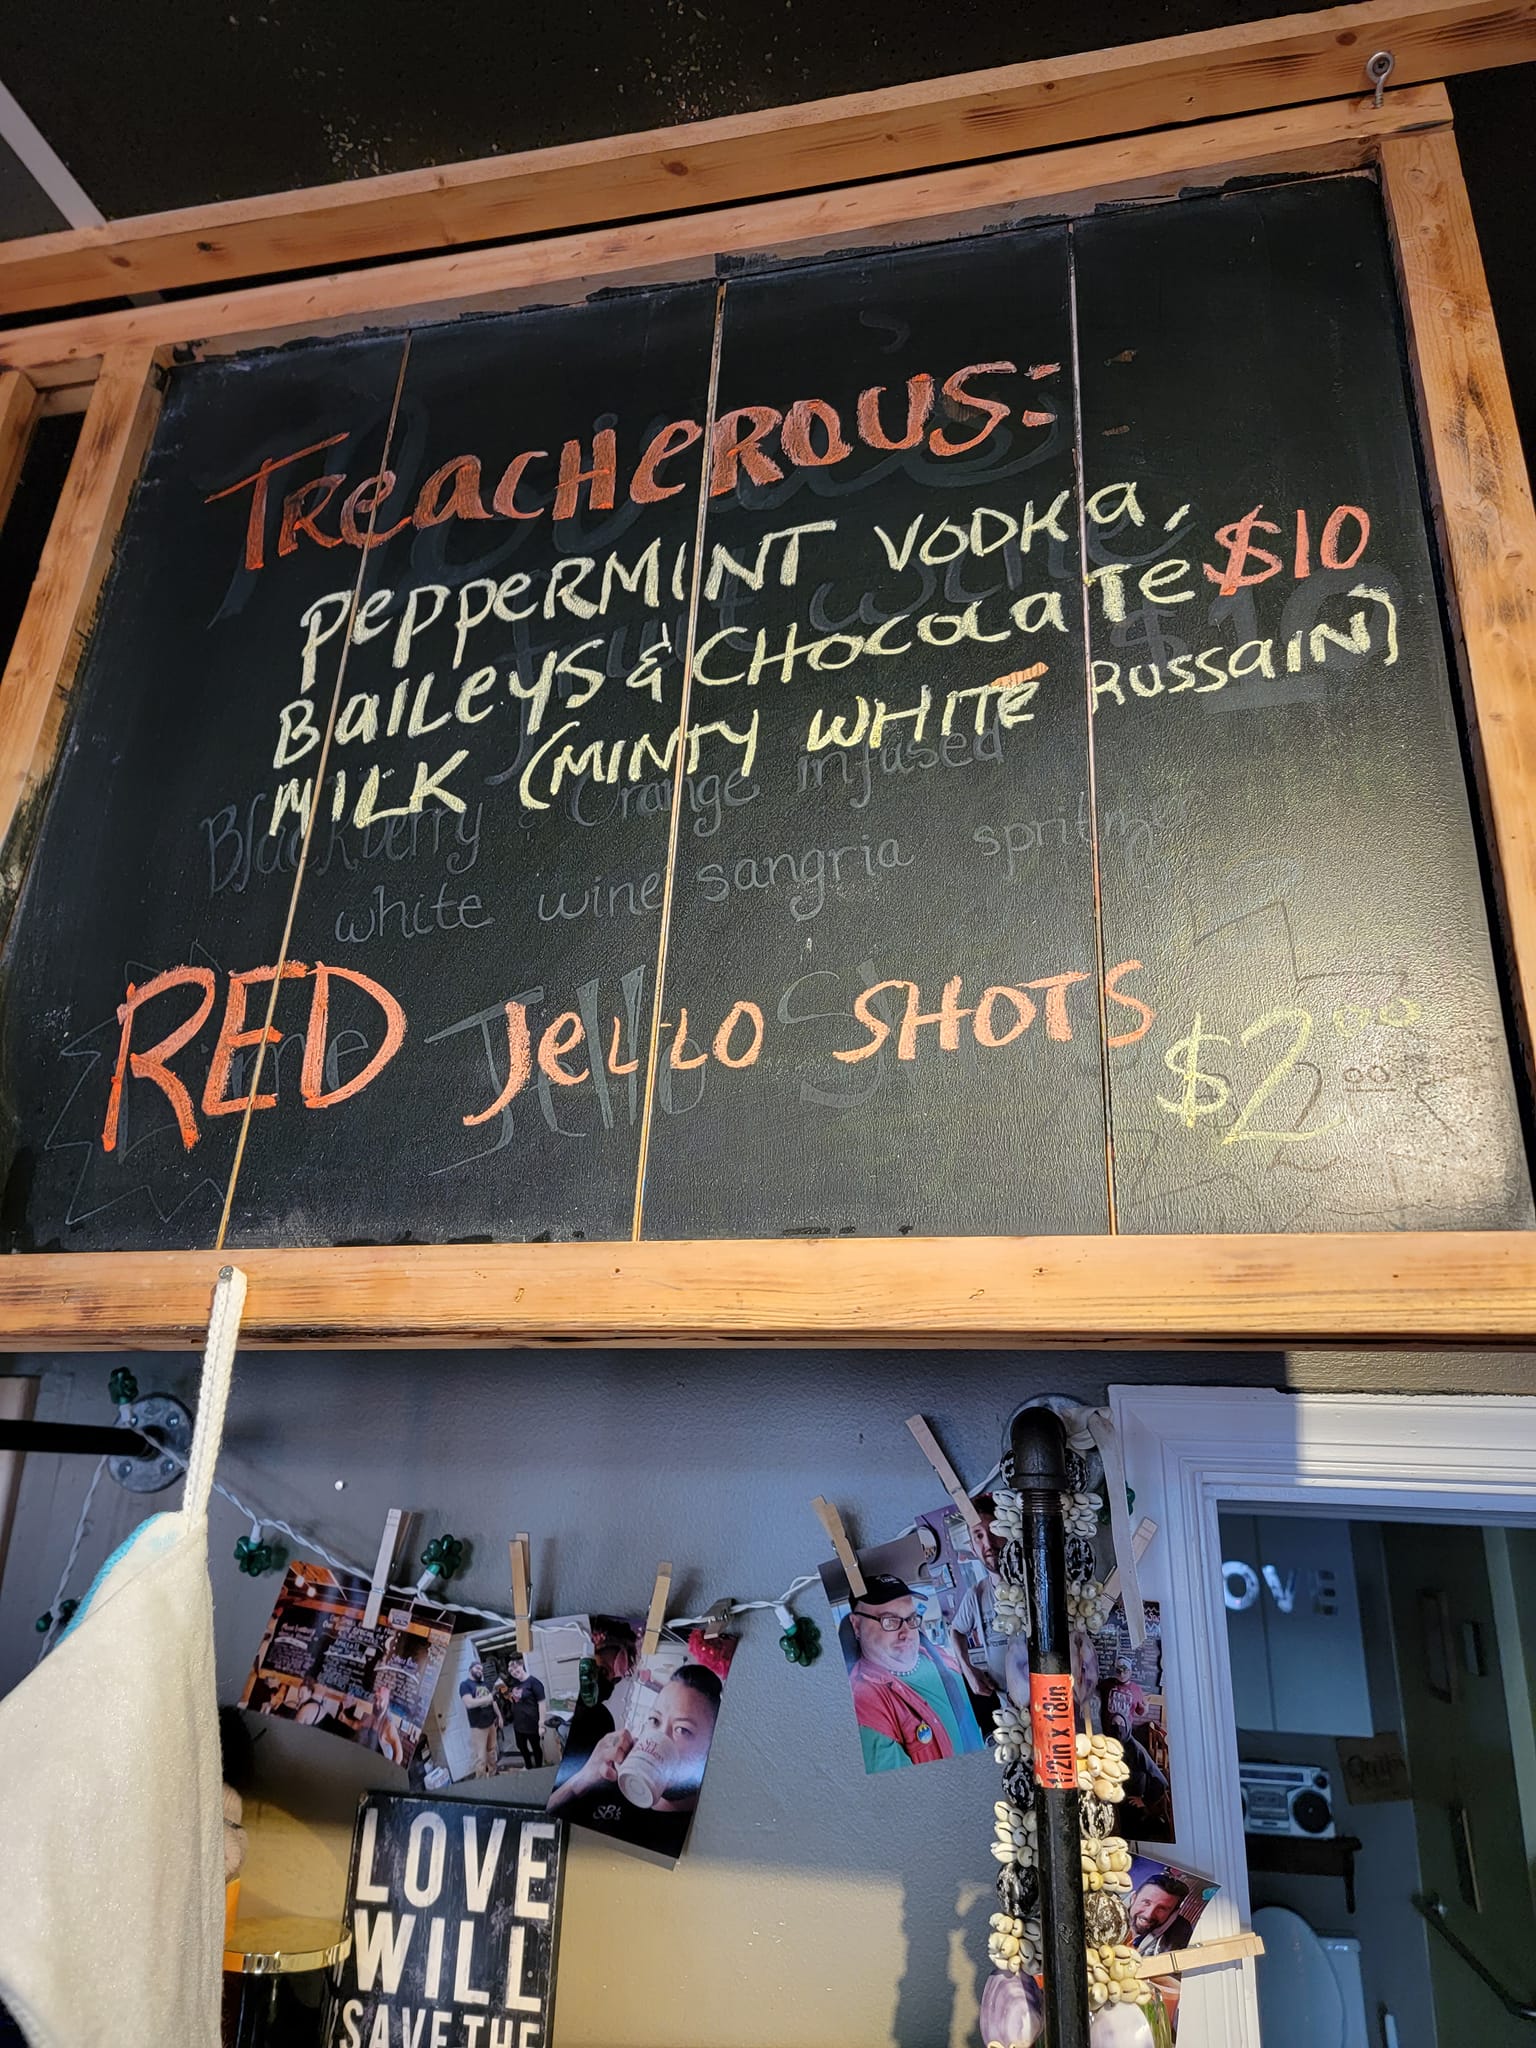 TReacHeROUS:
PePPeRMINT VODKa,
BaILeyS & CHOCOLaTe $10
MILK (MINTY WHITe RUSSaIN)
Blackberry Orange infused
white wine sangria spritzer
RED JeLLO SHOTS $2.00
OVE
1/2in x 18in
LOVE
WILL
SAVE THE